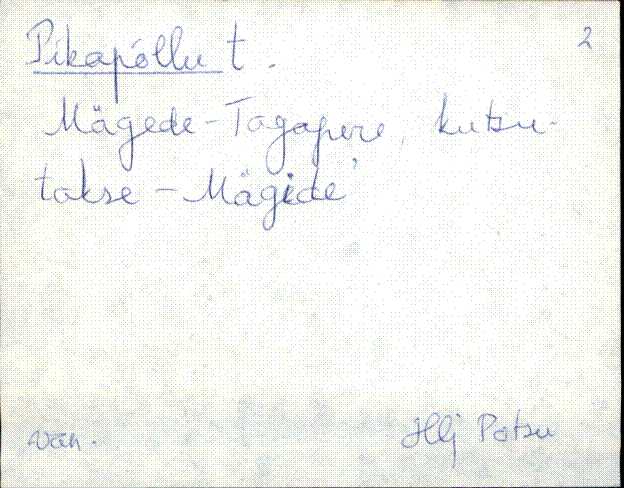 Pikapõllu t. 2
Mägede-Tagapere, kutsu-
takse - Mägide'
van. Hlj Potsu